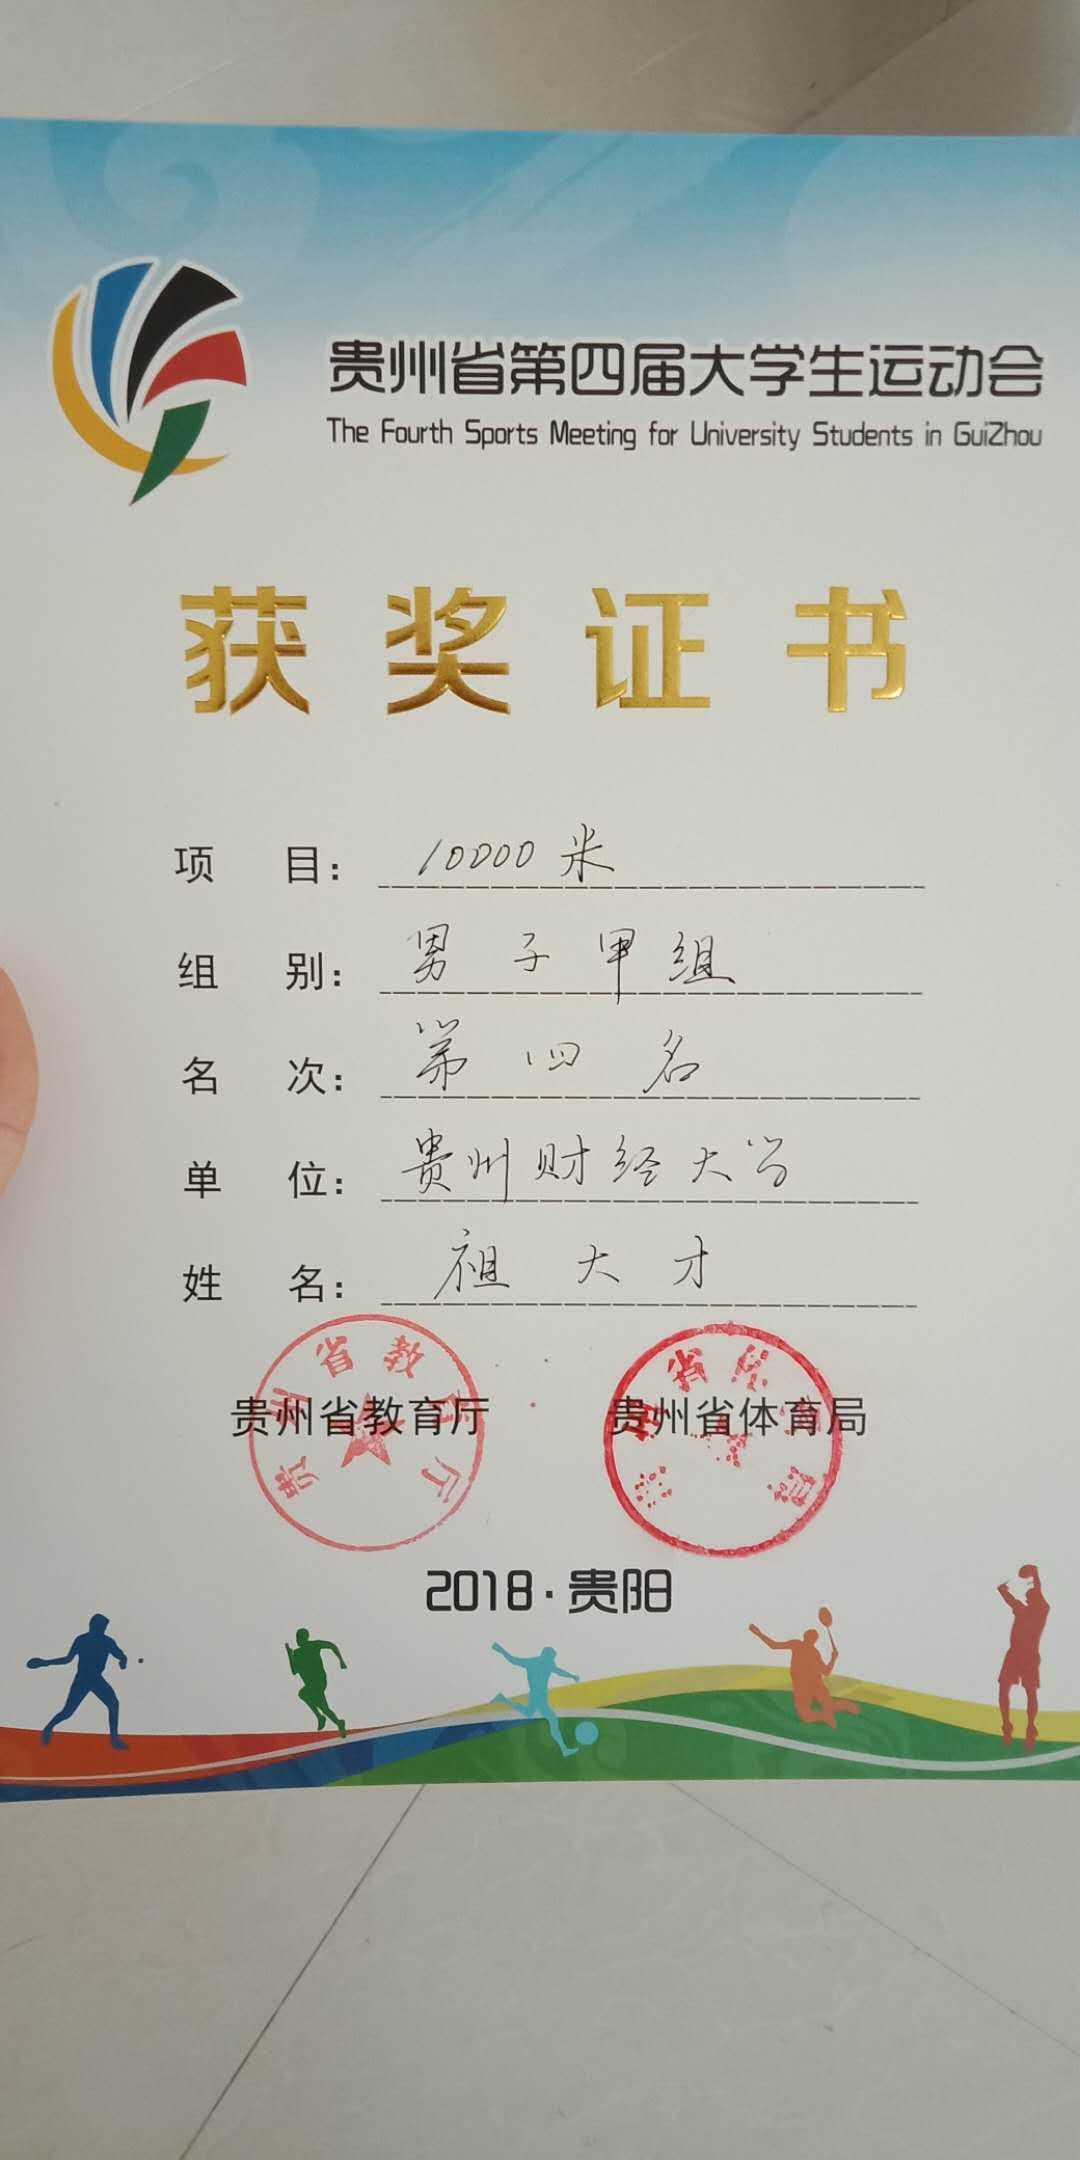 贵州省第四届大学生运动会
The Fourth Sports Meeting for University Students in GuiZhou
获奖证书
项目：10000米
组别：男子甲组
名次：第四名
单位：贵州财经大学
姓名：祖大才
贵州省教育厅 贵州省体育局
贵州省教育厅
2018·贵阳